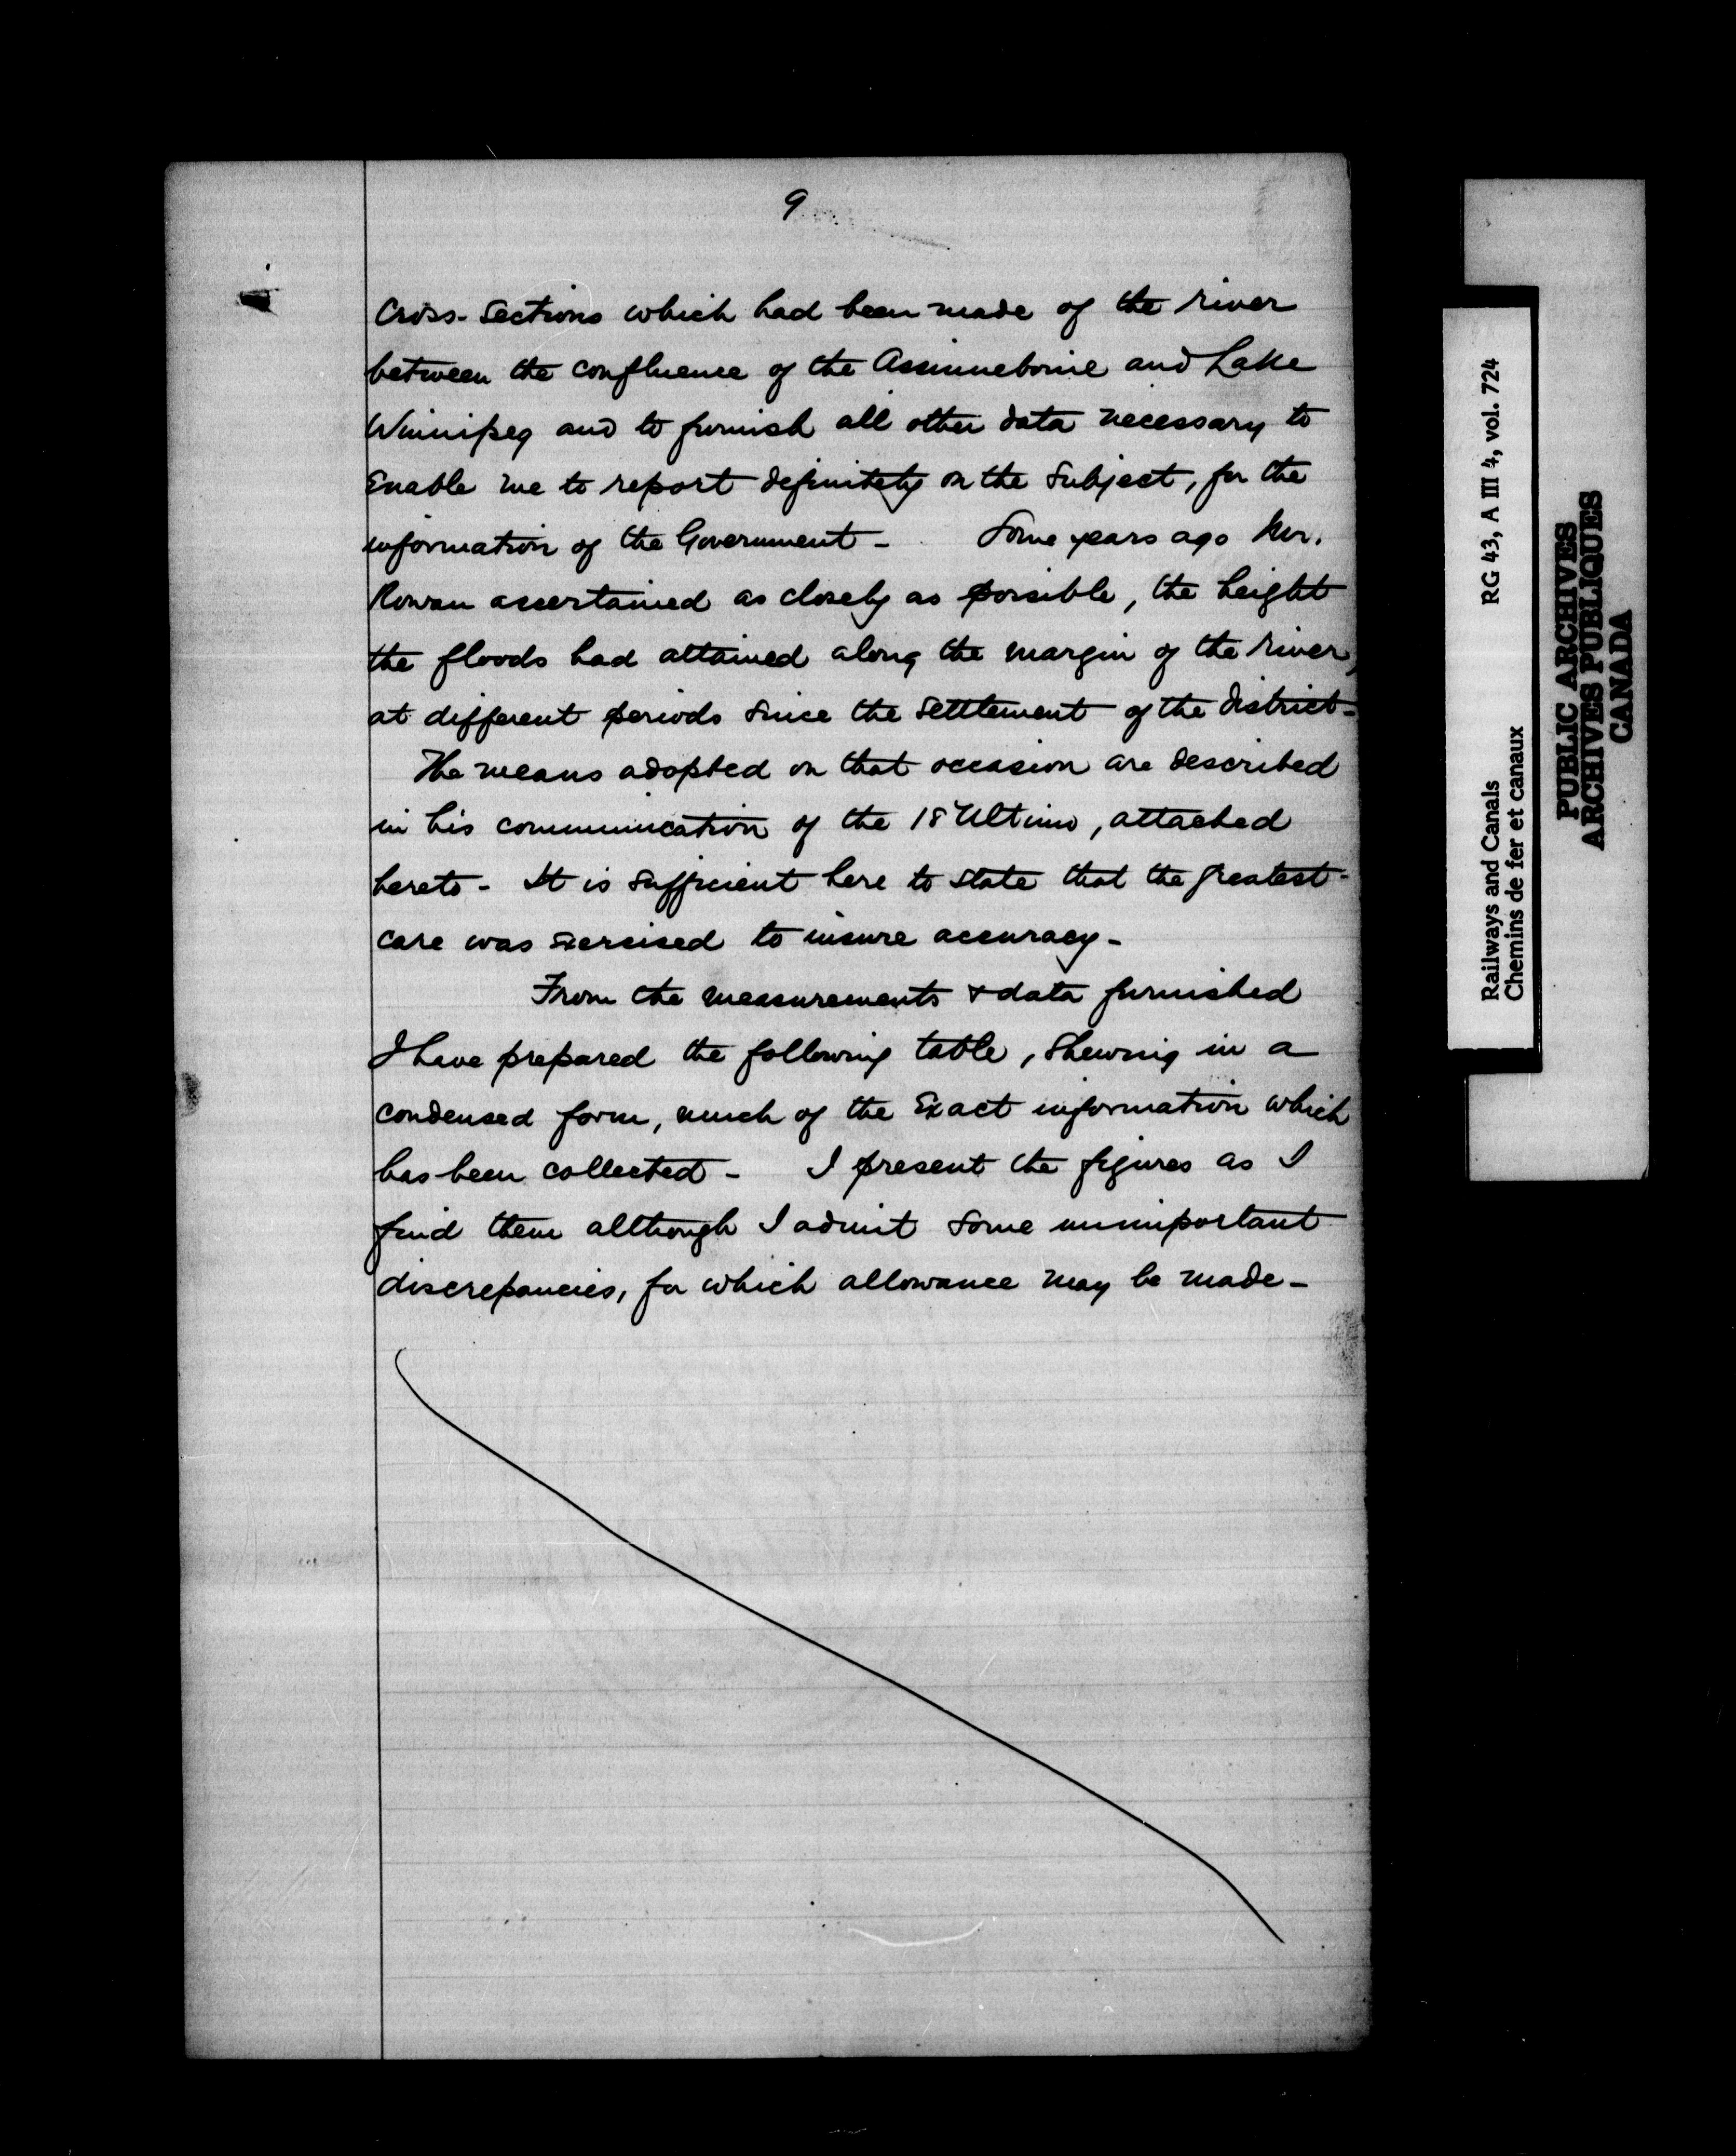 9
Cross-Sections which had been made of the river
between the confluence of the Assinneboine and Lake
Winnipeg and to furnish all other data necessary to
Enable me to report definitely on the Subject, for the
information of the Government - Some years ago Mr.
Rowan ascertained as closely as possible, the height
the floods had attained along the margin of the river,
at different periods since the settlement of the district-
The means adopted on that occasion are described
in his communication of the 18 Ultimo, attached
hereto - It is sufficient here to state that the greatest-
care was exercised to insure accuracy -
From the measurements & data furnished
I have prepared the following table, Shewing in a
condensed form, much of the Exact information which
has been collected - I present the figures as I
find them although I admit some unimportant
discrepancies, for which allowance may be made -
RG 43, A III 4, vol. 724
Railways and Canals
Chemins de fer et canaux
PUBLIC ARCHIVES
ARCHIVES PUBLIQUES
CANADA